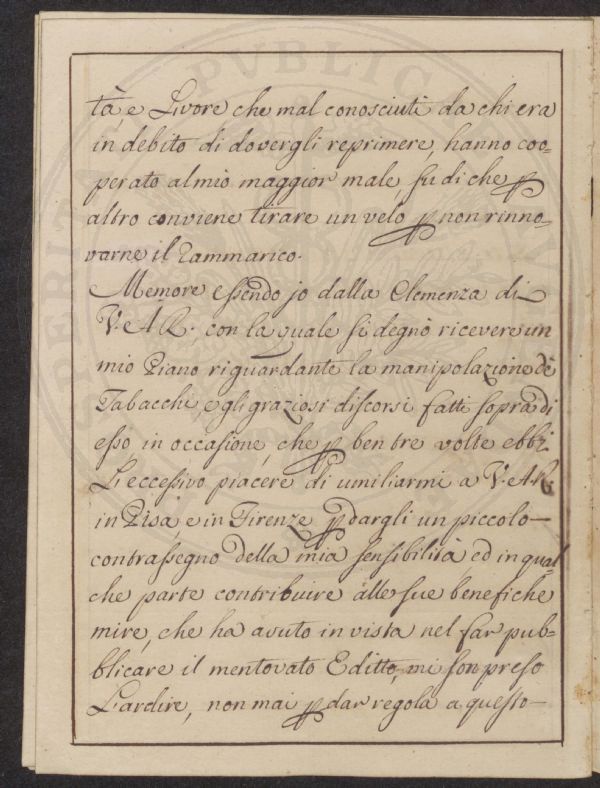 tà, e Livore che mal conosciuti da chi era
in debito di dovergli reprimere, hanno coo=
perato al mio maggior male, su di che ꝑ
altro conviene tirare un velo ꝑ non rinno=
varne il Rammarico.
Memore essendo io dalla Clemenza di
V. A. R., con la quale si degnò ricevere un
mio Piano riguardante la manipolazione dè
Tabacchi, e gli graziosi discorsi fatti sopra di
esso, in occasione, che ꝑ ben tre volte ebbi
L'eccessivo piacere di umiliarmi a V. A. R.
in Pisa, e in Firenze ꝑ dargli un piccolo
contrassegno della mia sensibilità, ed in qual=
che parte contribuire alle sue benefiche
mire, che ha avuto in vista nel far pub=
blicare il mentovato Editto, mi son preso
L'ardire, non mai ꝑ dar regola a questo